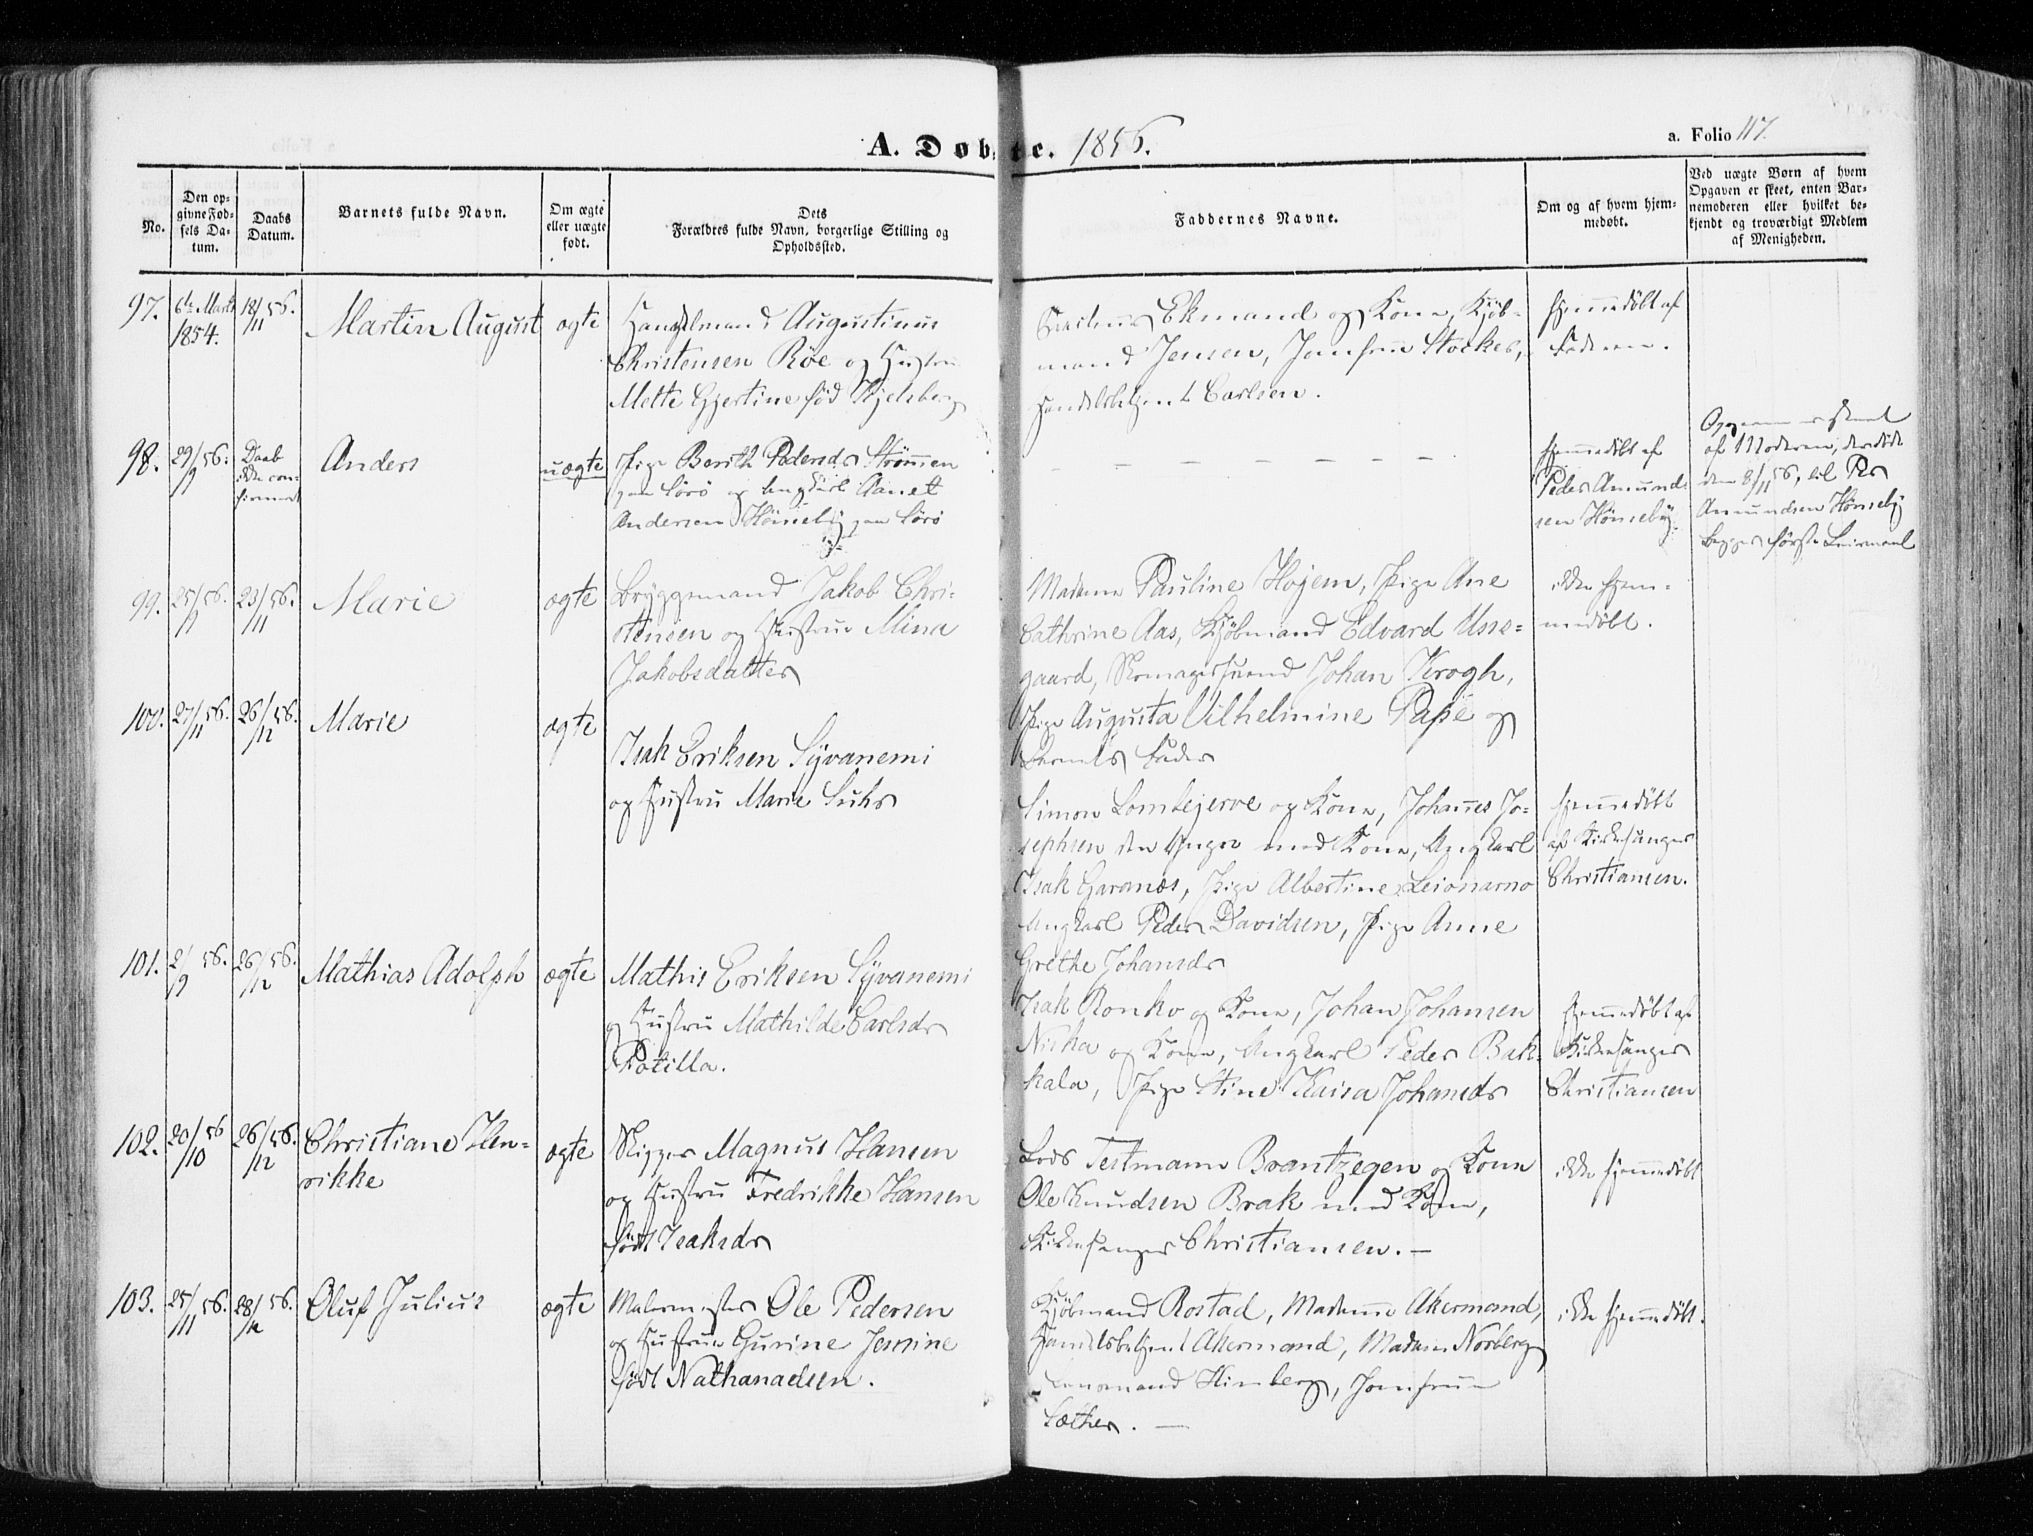 A. Døbte. 1856.
a. Folio 117.
No.
Den op-
givne Fød-
sels Da-
tum.
Daabs
Datum.
Barnets fulde Navn.
Om ægte
eller uægte
født.
Dets
Forældres fulde Navn, borgerlige Stilling og
Opholdssted.
Faddernes Navne.
Om og af hvem hjem-
medøbt.
Ved uægte Børn af hvem
Opgaven er skeet, enten Bar-
nemoderen eller hvilket be-
kjendt og troværdigt Medlem
af Menigheden.
97.
6te Marts
1854.
18/11 56.
Martin August
ægte
Handelsmand Augustinus
Christensen Röe og Hustru
Mette Gjertine föd Kjelsberg
Ekmand og Kone, Kjöb-
mand Jensen, Jomfru Stockes,
Handelsbetjent Carlsen.
Hjemmedöbt af
Faderen.
98.
29/9 56.
Daab
ikke con-
firmeret
Anders
uægte
Pige Berith Pedersdr Strömmen
paa Sörö og Ungkarl Aanet
Andersen Hönseby paa Sörö
Hjemmedöbt af
Peder Amund-
sen Hönseby.
Opgaven er skeet
af Moderen, der döde
den 8/11 56, til Per
Amundsen Hönseby
begges förste Leiermaal
99.
25/9 56.
23/11 56.
Marie
ægte
Bryggemand Jakob Chri-
stensen og Hustrue Mina
Jakobsdatter
Madame Pauline Hojem, Pige Ane
Cathrine Aas, Kjöbmand Edvard Usse-
gaard, Skomagersvend Johan Krogh,
Pige Augusta Vilhelmine Pape og
Barnets Fader
ikke hjem-
medöbt.
100.
27/11 56.
26/12 56.
Marie
ægte
Isak Eriksen Syvanemi
og Hustru Marie Suhr
Simon Lomlejerve og Kone, Johannes Jo-
sephsen den Yngre med Kone, Ungkarl
Isak Garanæs, Pige Albertine Leionarno
Ungkarl Peder Davidsen, Pige Anne
Grethe Johansdr
Hjemmedöbt
af Kirkesanger
Christiansen.
101.
2/9 56.
26/12 56.
Mathias Adolph
ægte
Mathis Eriksen Syvanemi
og Hustru Mathilde Carlsdr
Potilla.
Isak Ronko og Kone, Johan Johansen
Niska og Kone, Ungkarl Peder Bak-
kala, Pige Stine Kaisa Johansdr
Hjemmedöbt af
Kirkesanger
Christiansen
102.
20/10 56
26/12 56.
Christiane Hen-
rikke
ægte
Skipper Magnus Hansen
og Hustru Fredrikke Hansen
födt Isaksdr
Lods Testmann Brantzegen og Kone
Ole Knudsen Brak med Kone,
Kirkesanger Christiansen. —
ikke hjemmedöbt
103.
25/11 56.
28/12 56.
Oluf Julius
ægte
Malermester Ole Pedersen
og Hustrue Gurine Jensine
födt Nathanaelsen.
Kjöbmand Rostad, Madame Akermand,
Handelsbetjent Akermand, Madam Norberg
Himberg, Jomfrue
Sæther. —
ikke hjemmedöbt.